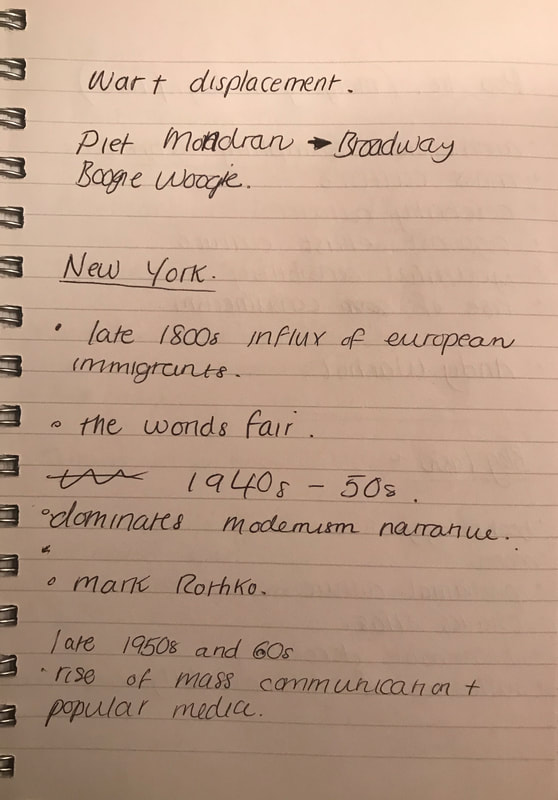 War + displacement.
Piet Mondran → Broadway
Boogie Woogie.
New York.
• late 1800s influx of european
immigrants.
• the worlds fair.
1940s - 50s.
• dominates modernism narrative.
• mark Rothko.
late 1950s and 60s
• rise of mass communication +
popular media.